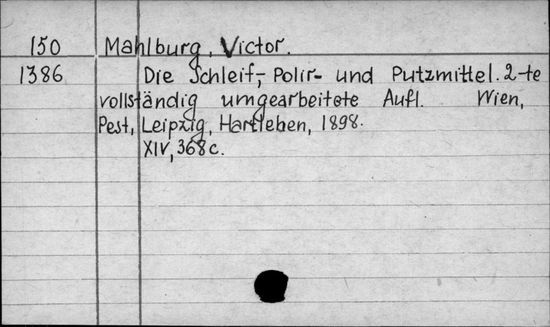 150 Mahlburg, Victor.
1386 Die Schleif-, Polir- und Putzmittel. 2-te
vollständig umgearbeitete Aufl. Wien,
Pest, Leipzig, Hartleben, 1898.
XIV, 368 c.